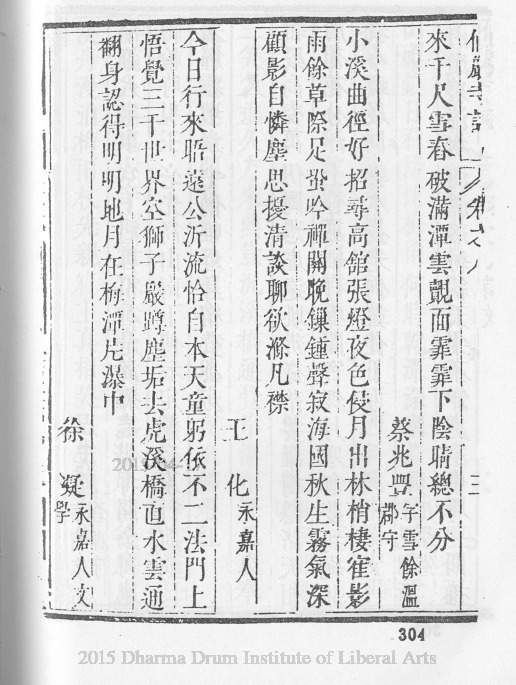 仙巖寺志
卷之八
三
來千尺雪春破滿潭雲覿面霏霏下陰晴總不分
蔡兆豐字雪餘溫
郡守
小溪曲徑好招尋高舘張燈夜色侵月出林梢棲隺影
雨餘草際足蛩吟禪關晚鏁鍾聲寂海國秋生霧氣深
顧影自憐塵思擾清談聊欲滌凡襟
王 化永嘉人
今日行來晤遠公沂流恰自本天童躬依不二法門上
悟覺三千世界空獅子嚴蹲塵垢去虎溪橋直水雲通
翻身認得明明地月在梅潭片瀑中
徐 凝永嘉人文
學
304
2015 Dharma Drum Institute of Liberal Arts